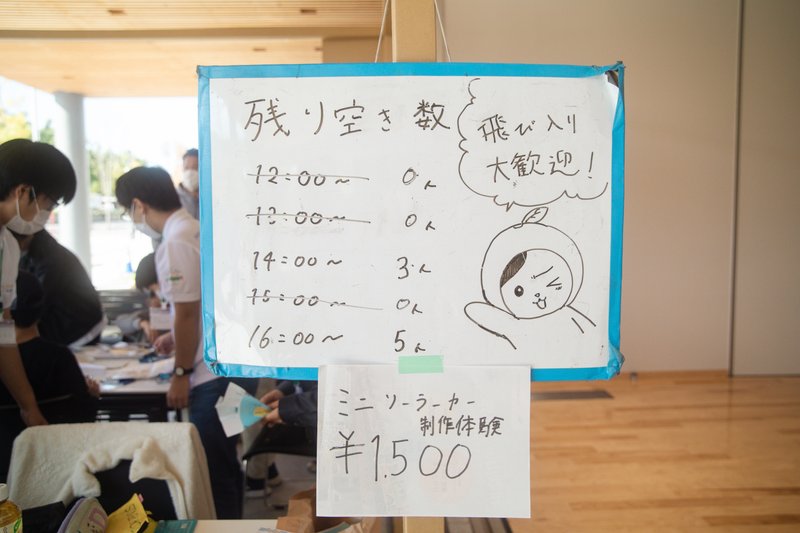 残り空き数
飛び入り
大歓迎!
12:00~ 0人
13:00~ 0人
14:00~ 3人
15:00~ 0人
16:00~ 5人
ミニソーラーカー
制作体験
¥1,500